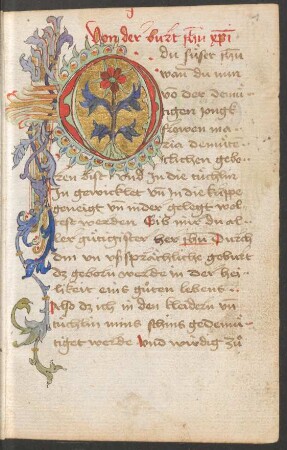 Von der burt ihu xpi
O du suser ihu
wan du nun
vō der demü
tigen iongk
frowen ma
ria demüte
clichen gebo
ren bist vnd In die tüchlin
In gewicklet vn̄ In die krippe
geneigt vn̄ nider gelegt wol
test werden Bis mir du al
ler gütigister her ihu Durch
din vn vssprächliche geburt
dz geborn werde in der hei
likeit eins güten lebens
Also dz ich in den kleidern vn̄
tüchlin mins schins gedemü
tiget werde Vnd wirdig zů